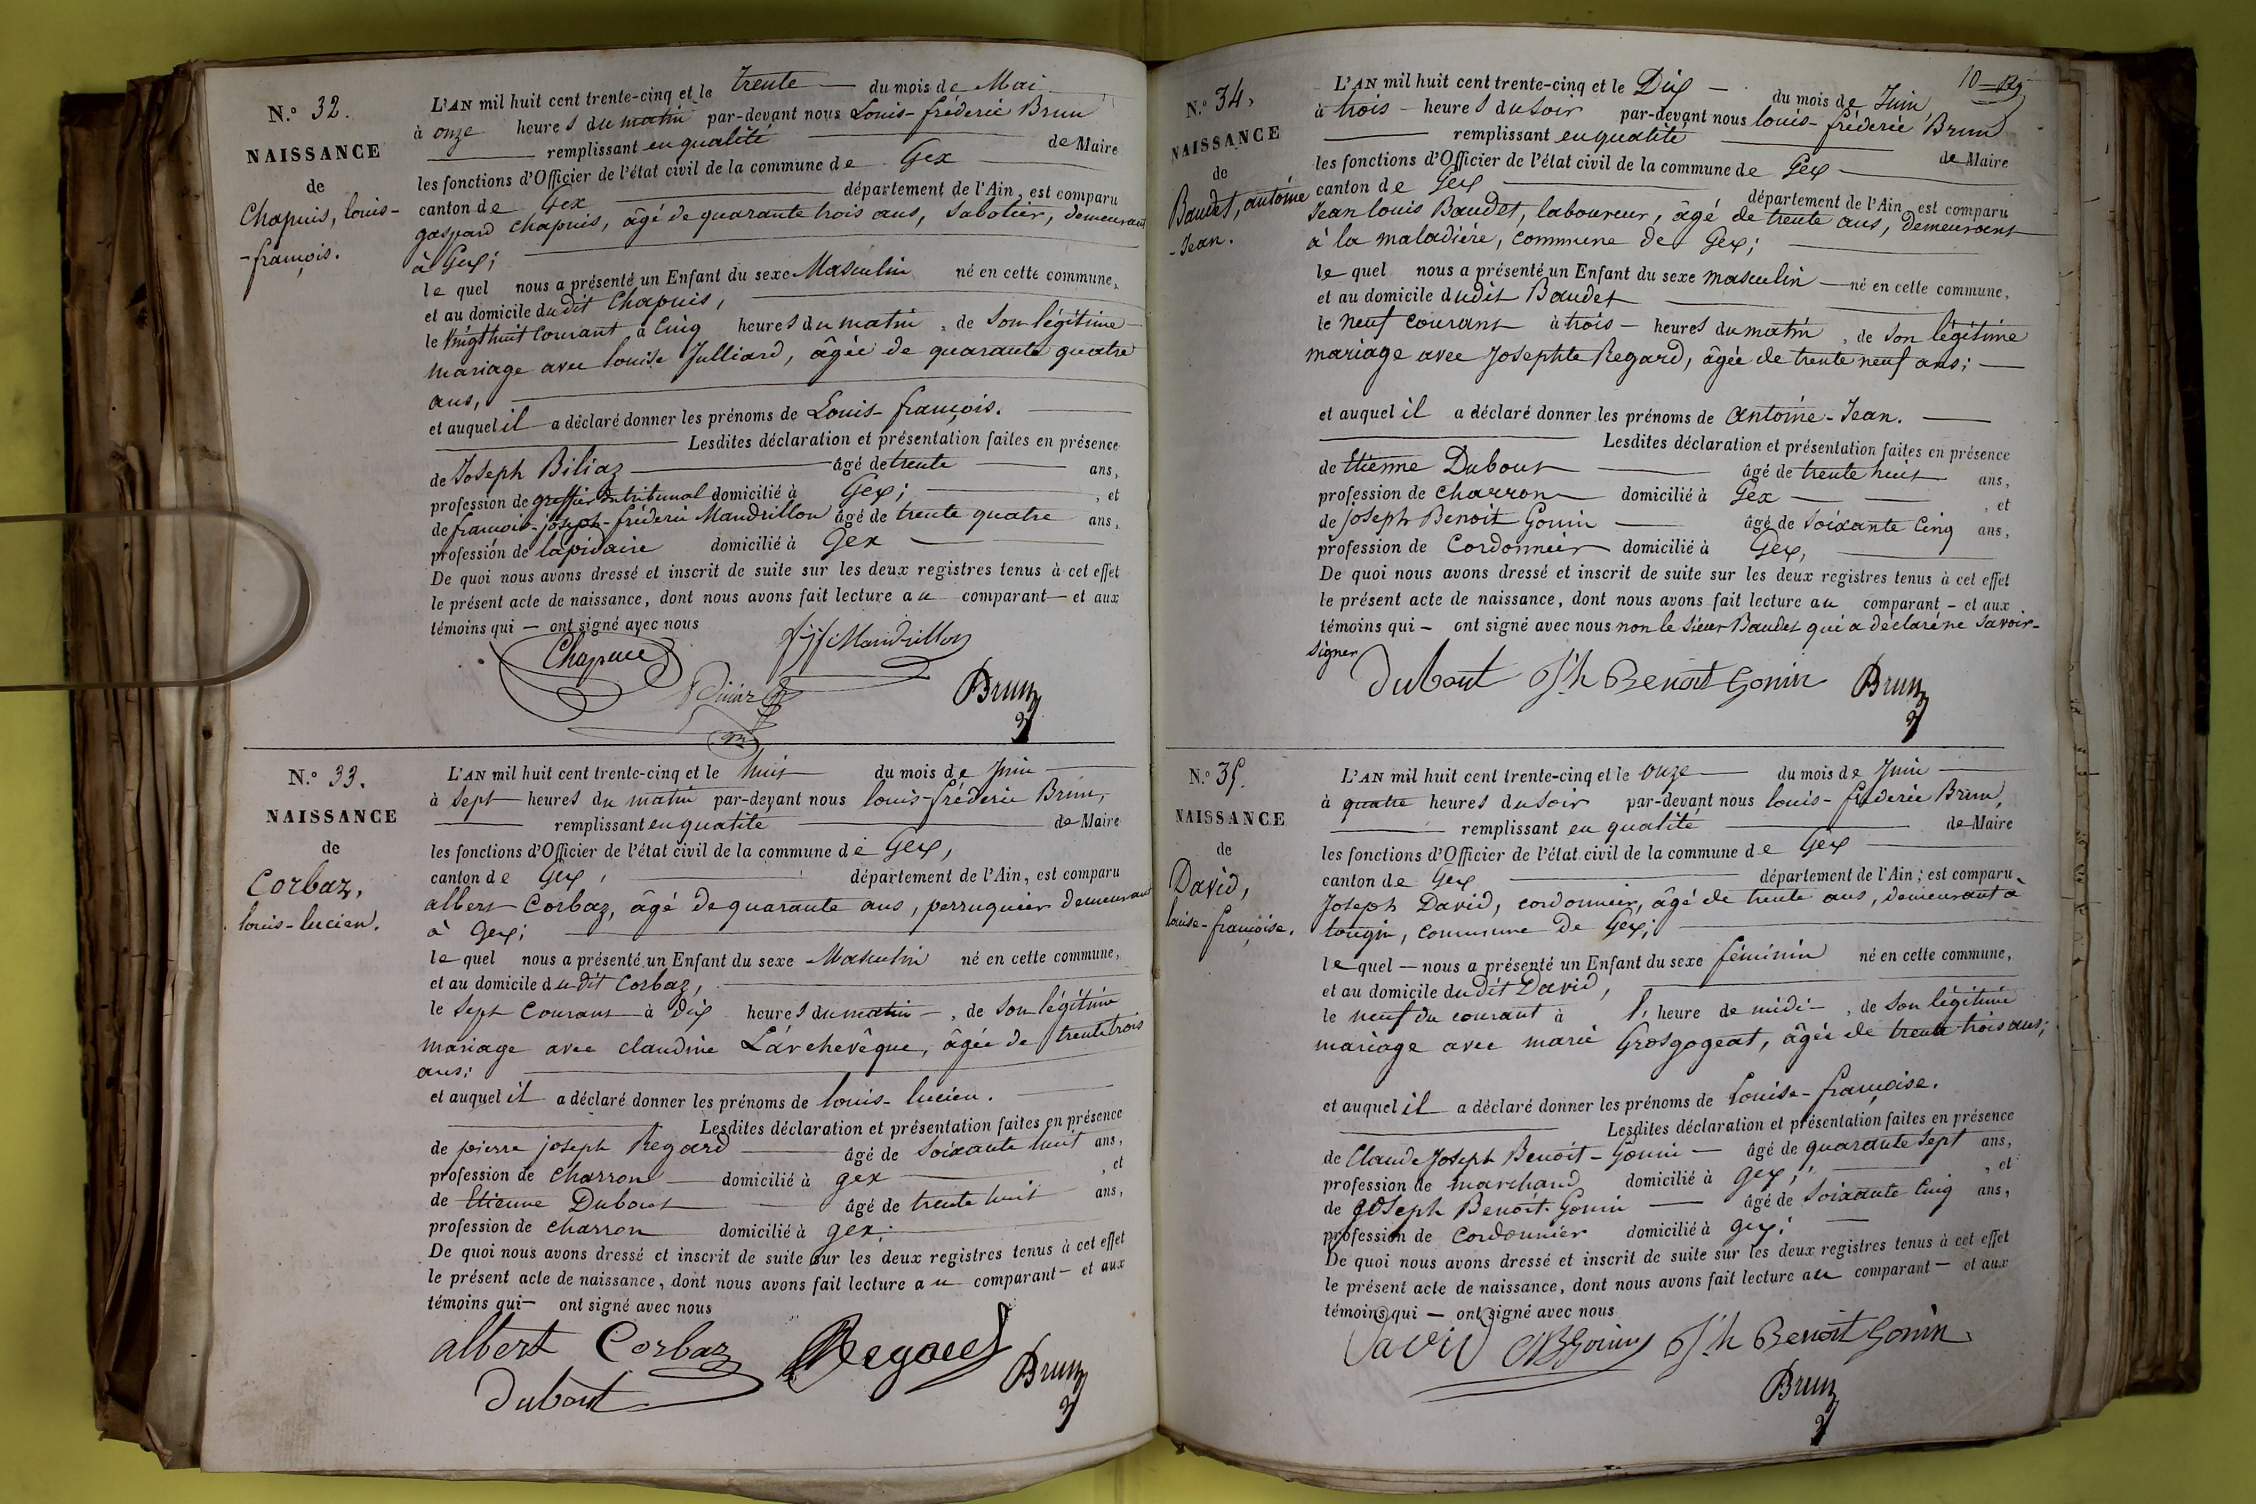 N.º 32.
NAISSANCE
de
Chapuis, louis-
-françois.
L'AN mil huit cent trente-cinq et le trente — du mois de Mai
à onze heures du matin par-devant nous Louis-fréderic Brun
remplissant en qualité de Maire
les fonctions d'Officier de l'état civil de la commune de Gex
canton de Gex département de l'Ain, est comparu
gaspard chapuis, âgé de quarante trois ans, Sabotier, demeurant
à Gex;
le quel nous a présenté un Enfant du sexe Masculin né en cette commune,
et au domicile dudit Chapuis,
le vingt huit Courant à Cinq heures du matin, de son légitime
mariage avec louise Julliard, âgée de quarante quatre
ans,
et auquel il a déclaré donner les prénoms de Louis-françois.
Lesdites déclaration et présentation faites en présence
de Joseph Biliaz âgé de trente ans,
profession de greffier du tribunal domicilié à Gex; , et
de françois-joseph-fréderic Mandrillon âgé de trente quatre ans,
profession de lapidaire domicilié à Gex
De quoi nous avons dressé et inscrit de suite sur les deux registres tenus à cet effet
le présent acte de naissance, dont nous avons fait lecture au comparant — et aux
témoins qui — ont signé avec nous
Mandrillon
Brun
N.º 33.
NAISSANCE
de
Corbaz,
louis-lucien.
L'AN mil huit cent trente-cinq et le huit du mois de Juin
à sept heures du matin par-devant nous louis-fréderic Brun,
remplissant en qualité de Maire
les fonctions d'Officier de l'état civil de la commune de Gex,
canton de Gex, département de l'Ain, est comparu
albert Corbaz, âgé de quarante ans, perruquier demeurant
à Gex;
le quel nous a présenté un Enfant du sexe Masculin né en cette commune,
et au domicile dudit Corbaz,
le Sept Courant à dix heures du matin —, de son légitime
mariage avec claudine Larchevêque, âgée de trente trois
ans;
et auquel il a déclaré donner les prénoms de louis-lucien.
Lesdites déclaration et présentation faites en présence
de pierre joseph Regard âgé de Soixante huit ans,
profession de charron domicilié à gex , et
de Etienne Dubout âgé de trente huit ans,
profession de charron domicilié à gex;
De quoi nous avons dressé et inscrit de suite sur les deux registres tenus à cet effet
le présent acte de naissance, dont nous avons fait lecture au comparant — et aux
témoins qui — ont signé avec nous
albert Corbaz Regard
dubout Brun
10
N.º 34,
NAISSANCE
de
Baudet, antoine
-Jean.
L'AN mil huit cent trente-cinq et le Dix — du mois de Juin
à trois — heures du soir par-devant nous louis-fréderic Brun
remplissant en qualité de Maire
les fonctions d'Officier de l'état civil de la commune de Gex
canton de Gex département de l'Ain, est comparu
Jean louis Baudet, laboureur, âgé de trente ans, demeurant
à la maladière, commune de Gex;
le quel nous a présenté un Enfant du sexe masculin — né en cette commune,
et au domicile dudit Baudet
le neuf courant à trois — heures du matin, de son légitime
mariage avec Josephte Regard, âgée de trente neuf ans;
et auquel il a déclaré donner les prénoms de antoine-Jean.
Lesdites déclaration et présentation faites en présence
de Etienne Dubout âgé de trente huit ans,
profession de charron domicilié à Gex , et
de joseph Benoit Gonin âgé de soixante Cinq ans,
profession de Cordonnier domicilié à Gex,
De quoi nous avons dressé et inscrit de suite sur les deux registres tenus à cet effet
le présent acte de naissance, dont nous avons fait lecture au comparant — et aux
témoins qui — ont signé avec nous non le sieur Baudet qui a déclaré ne savoir
signer
dubout Jh Benoit Gonin Brun
N.º 35.
NAISSANCE
de
David,
louise-françoise.
L'AN mil huit cent trente-cinq et le onze du mois de Juin
à quatre heures du soir par-devant nous louis-fréderic Brun,
remplissant en qualité de Maire
les fonctions d'Officier de l'état civil de la commune de Gex
canton de Gex département de l'Ain; est comparu
Joseph David, cordonnier, âgé de trente ans, demeurant à
tougin, commune de Gex;
le quel — nous a présenté un Enfant du sexe féminin né en cette commune,
et au domicile dudit David,
le neuf du courant à l'heure de midi —, de son légitime
mariage avec marie Grosgogeat, âgée de trente trois ans;
et auquel il a déclaré donner les prénoms de Louise-françoise.
Lesdites déclaration et présentation faites en présence
de Claude Joseph Benoit-Gonin — âgé de quarante sept ans,
profession de marchand domicilié à gex; , et
de joseph Benoit-Gonin âgé de soixante Cinq ans,
profession de Cordonnier domicilié à gex;
De quoi nous avons dressé et inscrit de suite sur les deux registres tenus à cet effet
le présent acte de naissance, dont nous avons fait lecture au comparant — et aux
témoins qui — ont signé avec nous
David Jh Benoit Gonin
Brun